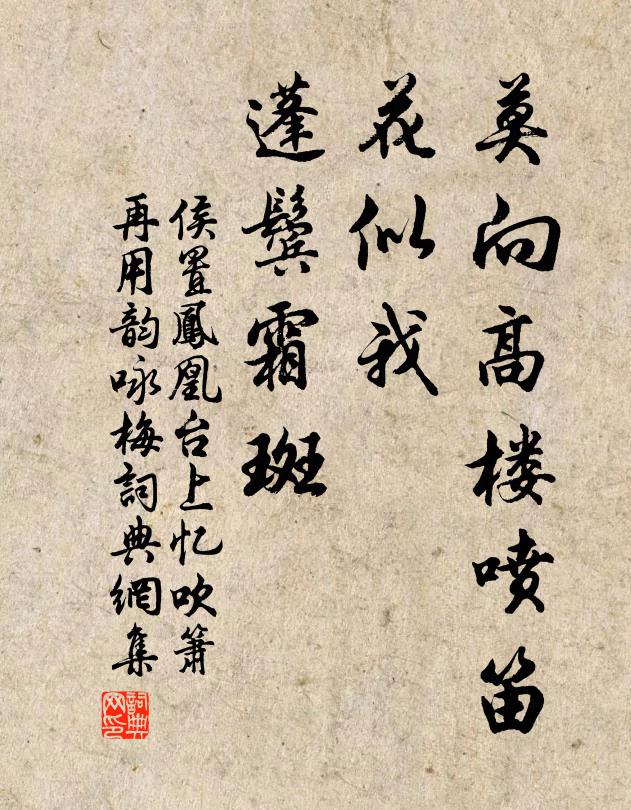 莫向高楼喷笛
花似我
蓬鬓霜斑
侯置鳳凰台上忆吹箫
再用韵咏梅詞典網集
詞典
网印